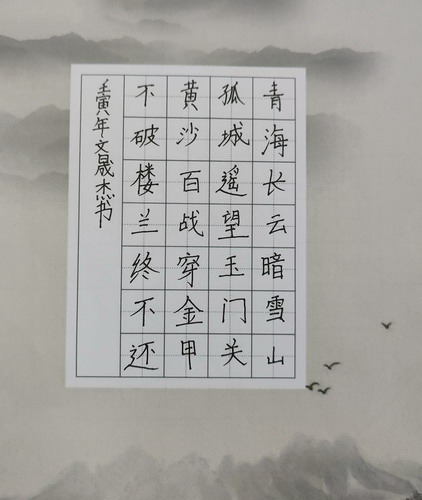 青海长云暗雪山
孤城遥望玉门关
黄沙百战穿金甲
不破楼兰终不还
壬寅年文晟杰书